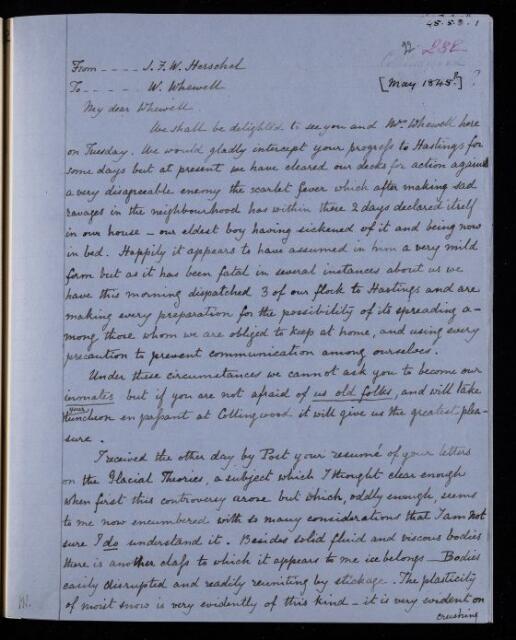 288
From - - - - J. F. W. Herschel
[May 1845?] ?
To - - - - W. Whewell
My dear Whewell
We shall be delighted to see you and Mrs Whewell here
on Tuesday. We would gladly intercept your progress to Hastings for
some days but at present we have cleared our decks for action against
a very disagreeable enemy the scarlet fever which after making sad
ravages in the neighbourhood has within these 2 days declared itself
in our house – our eldest boy having sickened of it and being now
in bed. Happily it appears to have assumed in him a very mild
form but as it has been fatal in several instances about us we
have this morning dispatched 3 of our flock to Hastings and are
making every preparation for the possibility of its spreading a-
mong those whom we are obliged to keep at home, and using every
precaution to prevent communication among ourselves.
Under these circumstances we cannot ask you to become our
inmates but if you are not afraid of us old folks, and will take
your luncheon en passant at Collingwood it will give us the greatest plea-
sure.
I received the other day by Post your resumé of your letters
on the Glacial Theories, a subject which I thought clear enough
when first this controversy arose but which, oddly enough, seems
to me now encumbered with so many considerations that I am not
sure I do understand it. Besides solid fluid and viscous bodies
there is another class to which it appears to me ice belongs – Bodies
easily disrupted and readily reuniting by stickage. The plasticity
of moist snow is very evidently of this kind – it is very evident on
crushing